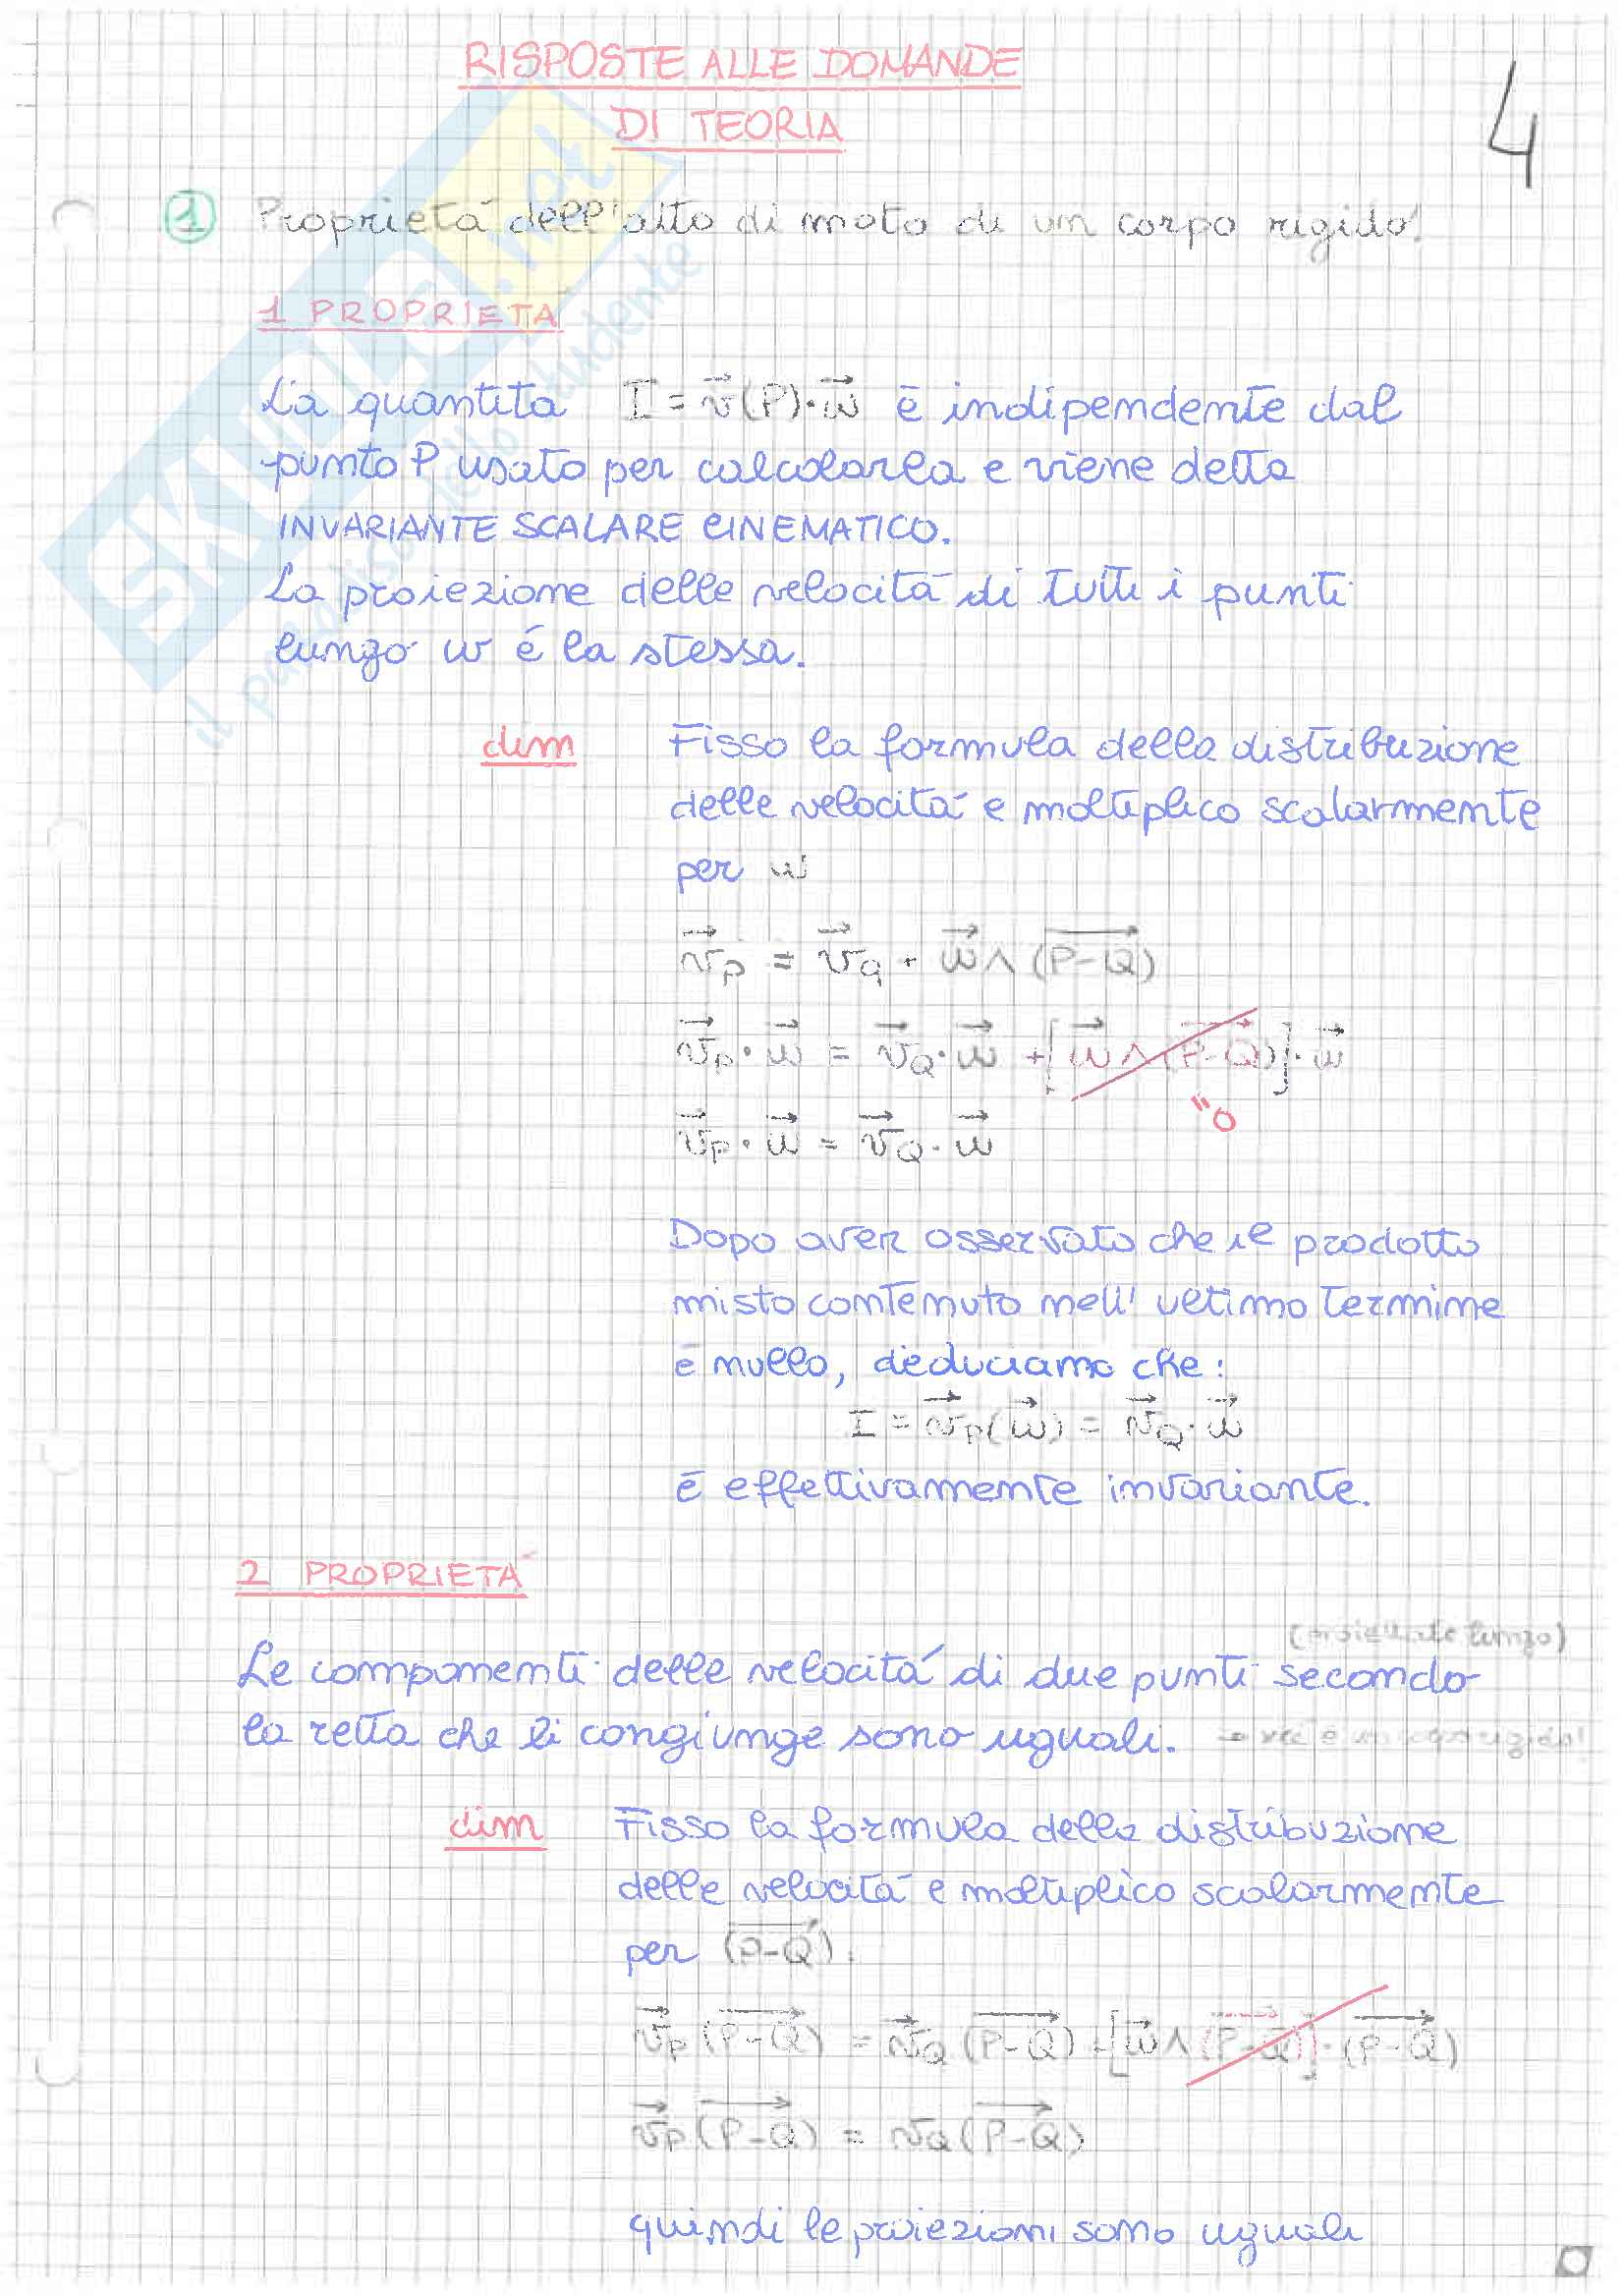 RISPOSTE ALLE DOMANDE
DI TEORIA
4
1 Proprietá dell'atto di moto di un corpo rigido!
1 PROPRIETA
La quantita I = v⃗(P)·w⃗ é indipendente dal
punto P usato per calcolarla e viene detta
INVARIANTE SCALARE CINEMATICO.
La proiezione delle velocitá di tutti i punti
lungo w é la stessa.
dim Fisso la formula della distribuzione
delle velocitá e moltiplico scalarmente
per w
v⃗P = v⃗Q + w⃗ ∧ (P-Q)
v⃗P · w⃗ = v⃗Q · w⃗ + [w⃗ ∧ (P-Q)] · w⃗
"0
v⃗P · w⃗ = v⃗Q · w⃗
Dopo aver osservato che il prodotto
misto contenuto nell' ultimo termine
é nullo, deduciamo che:
I = v⃗P(w⃗) = v⃗Q · w⃗
é effettivamente invariante.
2 PROPRIETÁ
(proiettate lungo)
Le componenti delle velocitá di due punti secondo
la retta che li congiunge sono uguali.
dim Fisso la formula della distribuzione
delle velocitá e moltiplico scalarmente
per (P-Q).
v⃗P (P-Q) = v⃗Q (P-Q) + [w⃗ ∧ (P-Q)] · (P-Q)
v⃗P (P-Q) = vQ (P-Q)
quindi le proiezioni sono uguali
SKUOLA.net
il paradiso dello studente